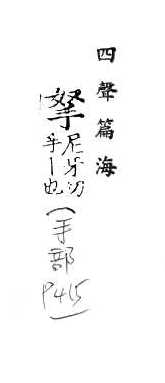 四聲篇海
尼牙切
手丨也
(手部
P415)